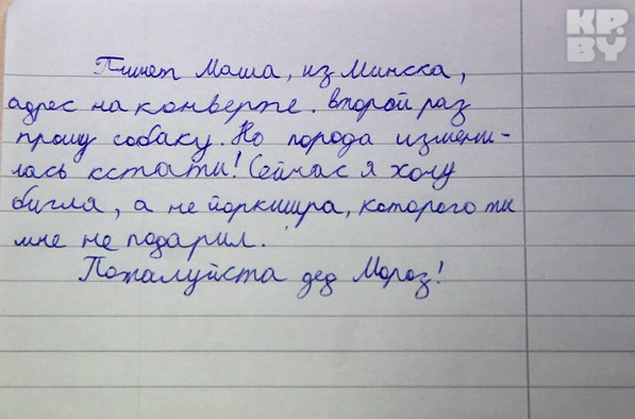 KP.
BY
Пишет Маша, из Минска,
адрес на конверте. второй раз
прошу собаку. Но порода измени-
лась кстати! Сейчас я хочу
бигля, а не йоркшира, которого ты
мне не подарил.
Пожалуйста дед Мороз!